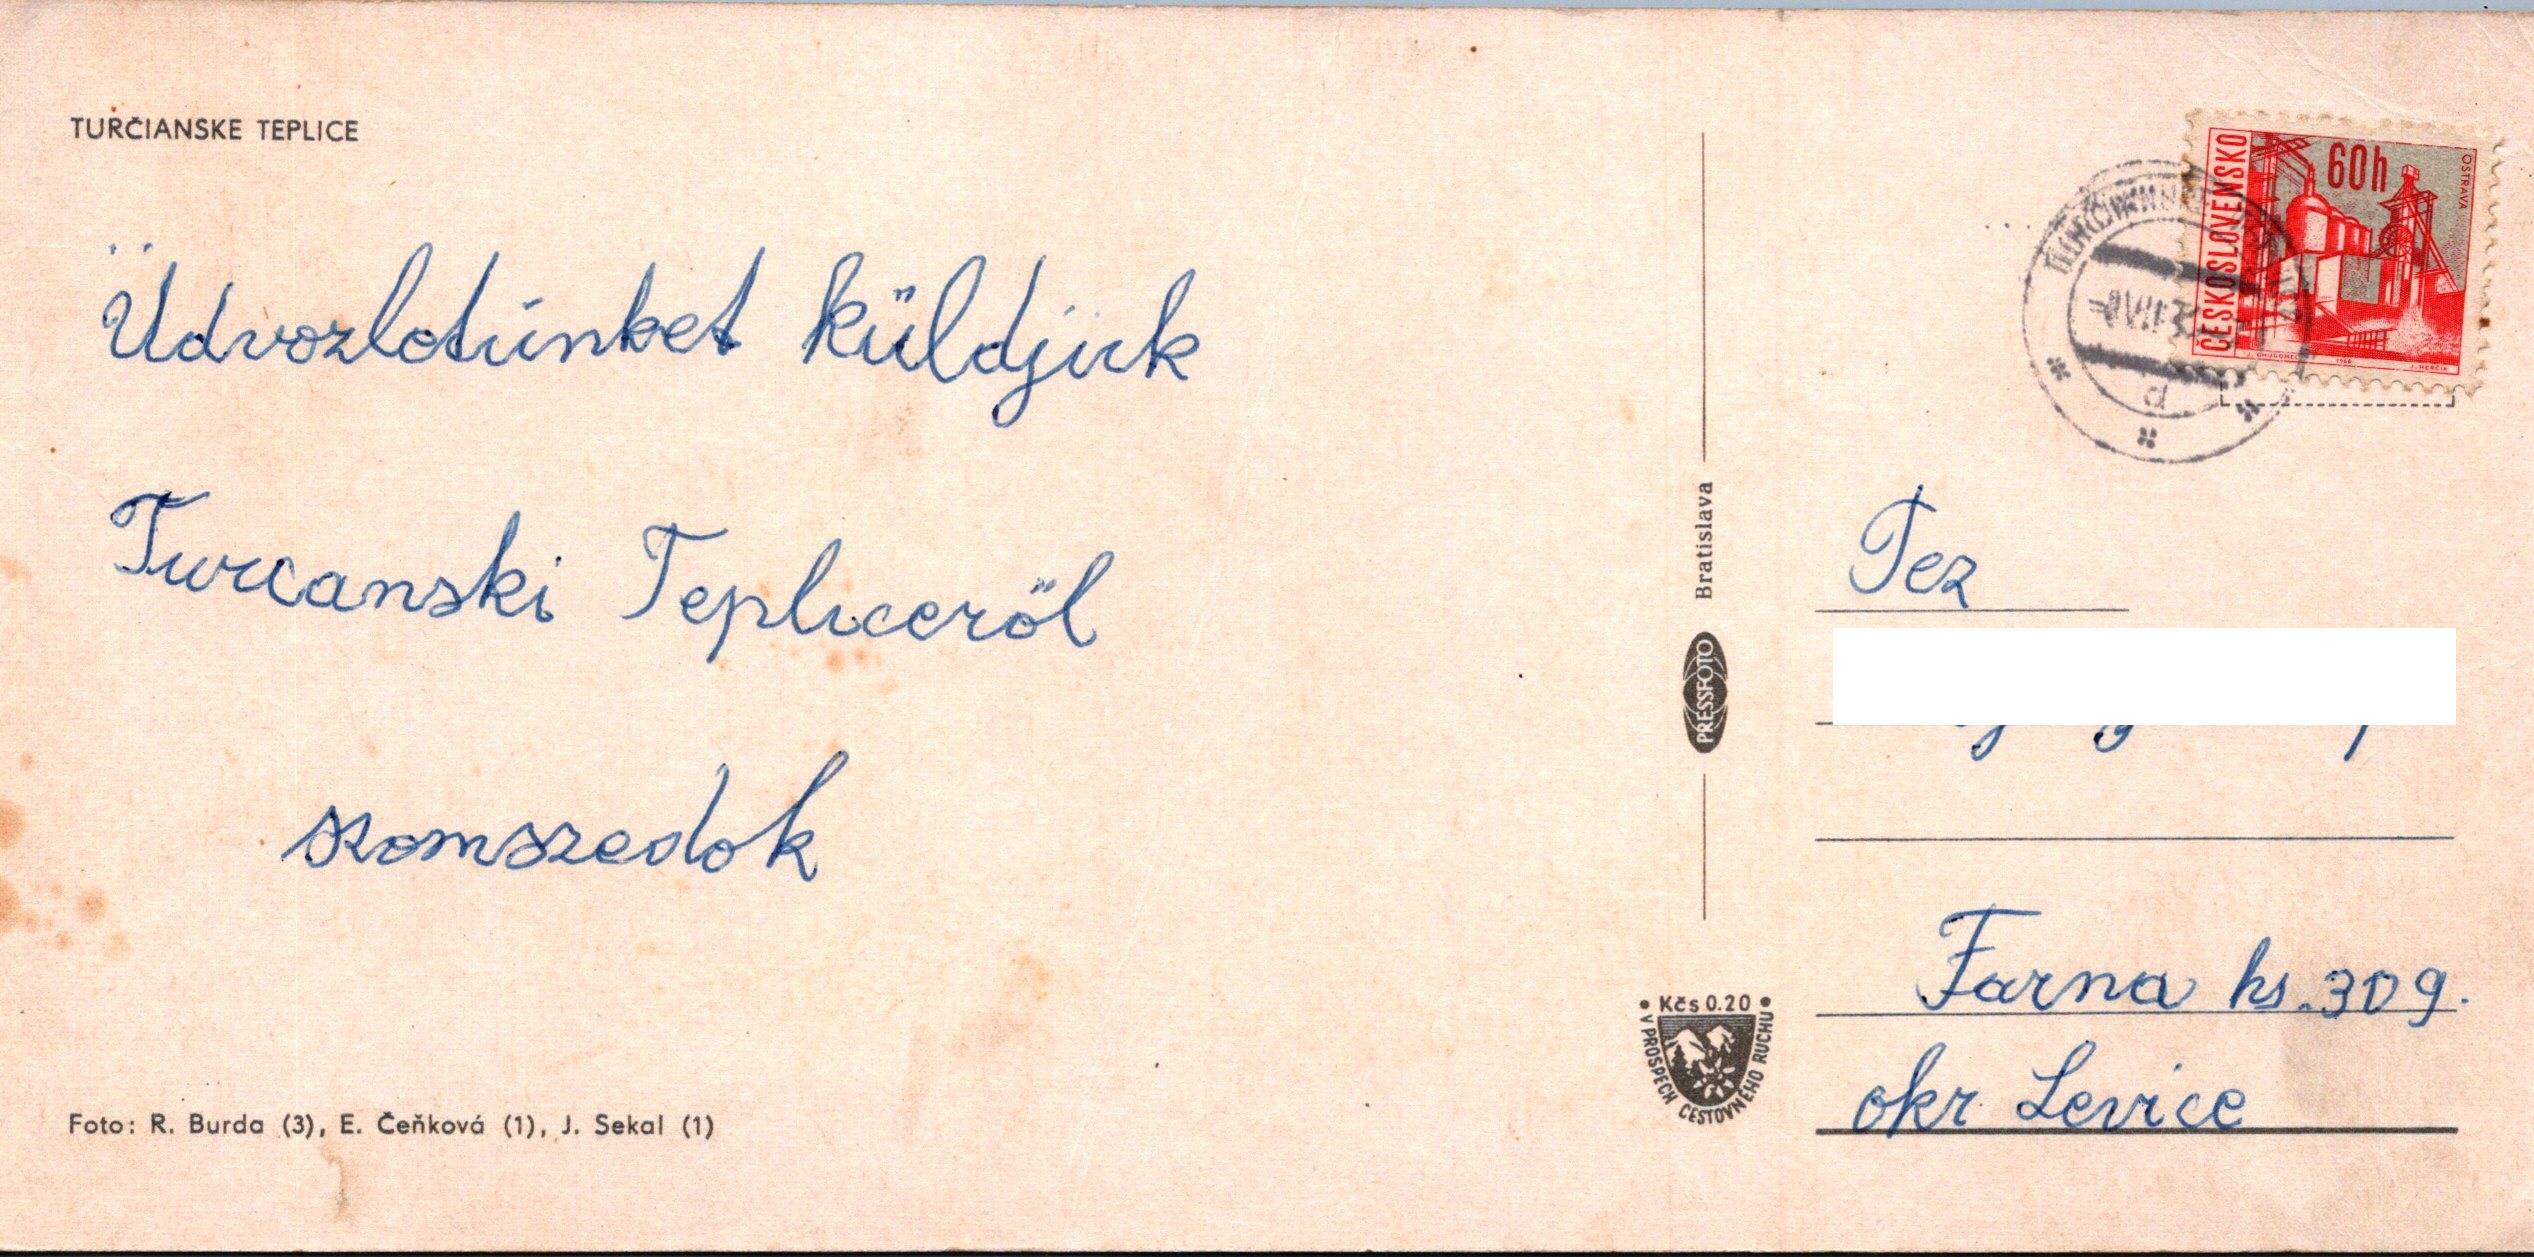 TURČIANSKE TEPLICE
Üdvozletünket küldjük
Turcanski Tepliceről
szomszedok
Foto: R. Burda (3), E. Čeňková (1), J. Sekal (1)
Bratislava
PRESSFOTO
• Kčs 0.20 •
V PROSPECH CESTOVNÉHO RUCHU
ČESKOSLOVENSKO
60h
OSTRAVA
1966
J. HERČÍK
Tez
Farna hs. 309.
okr Levice